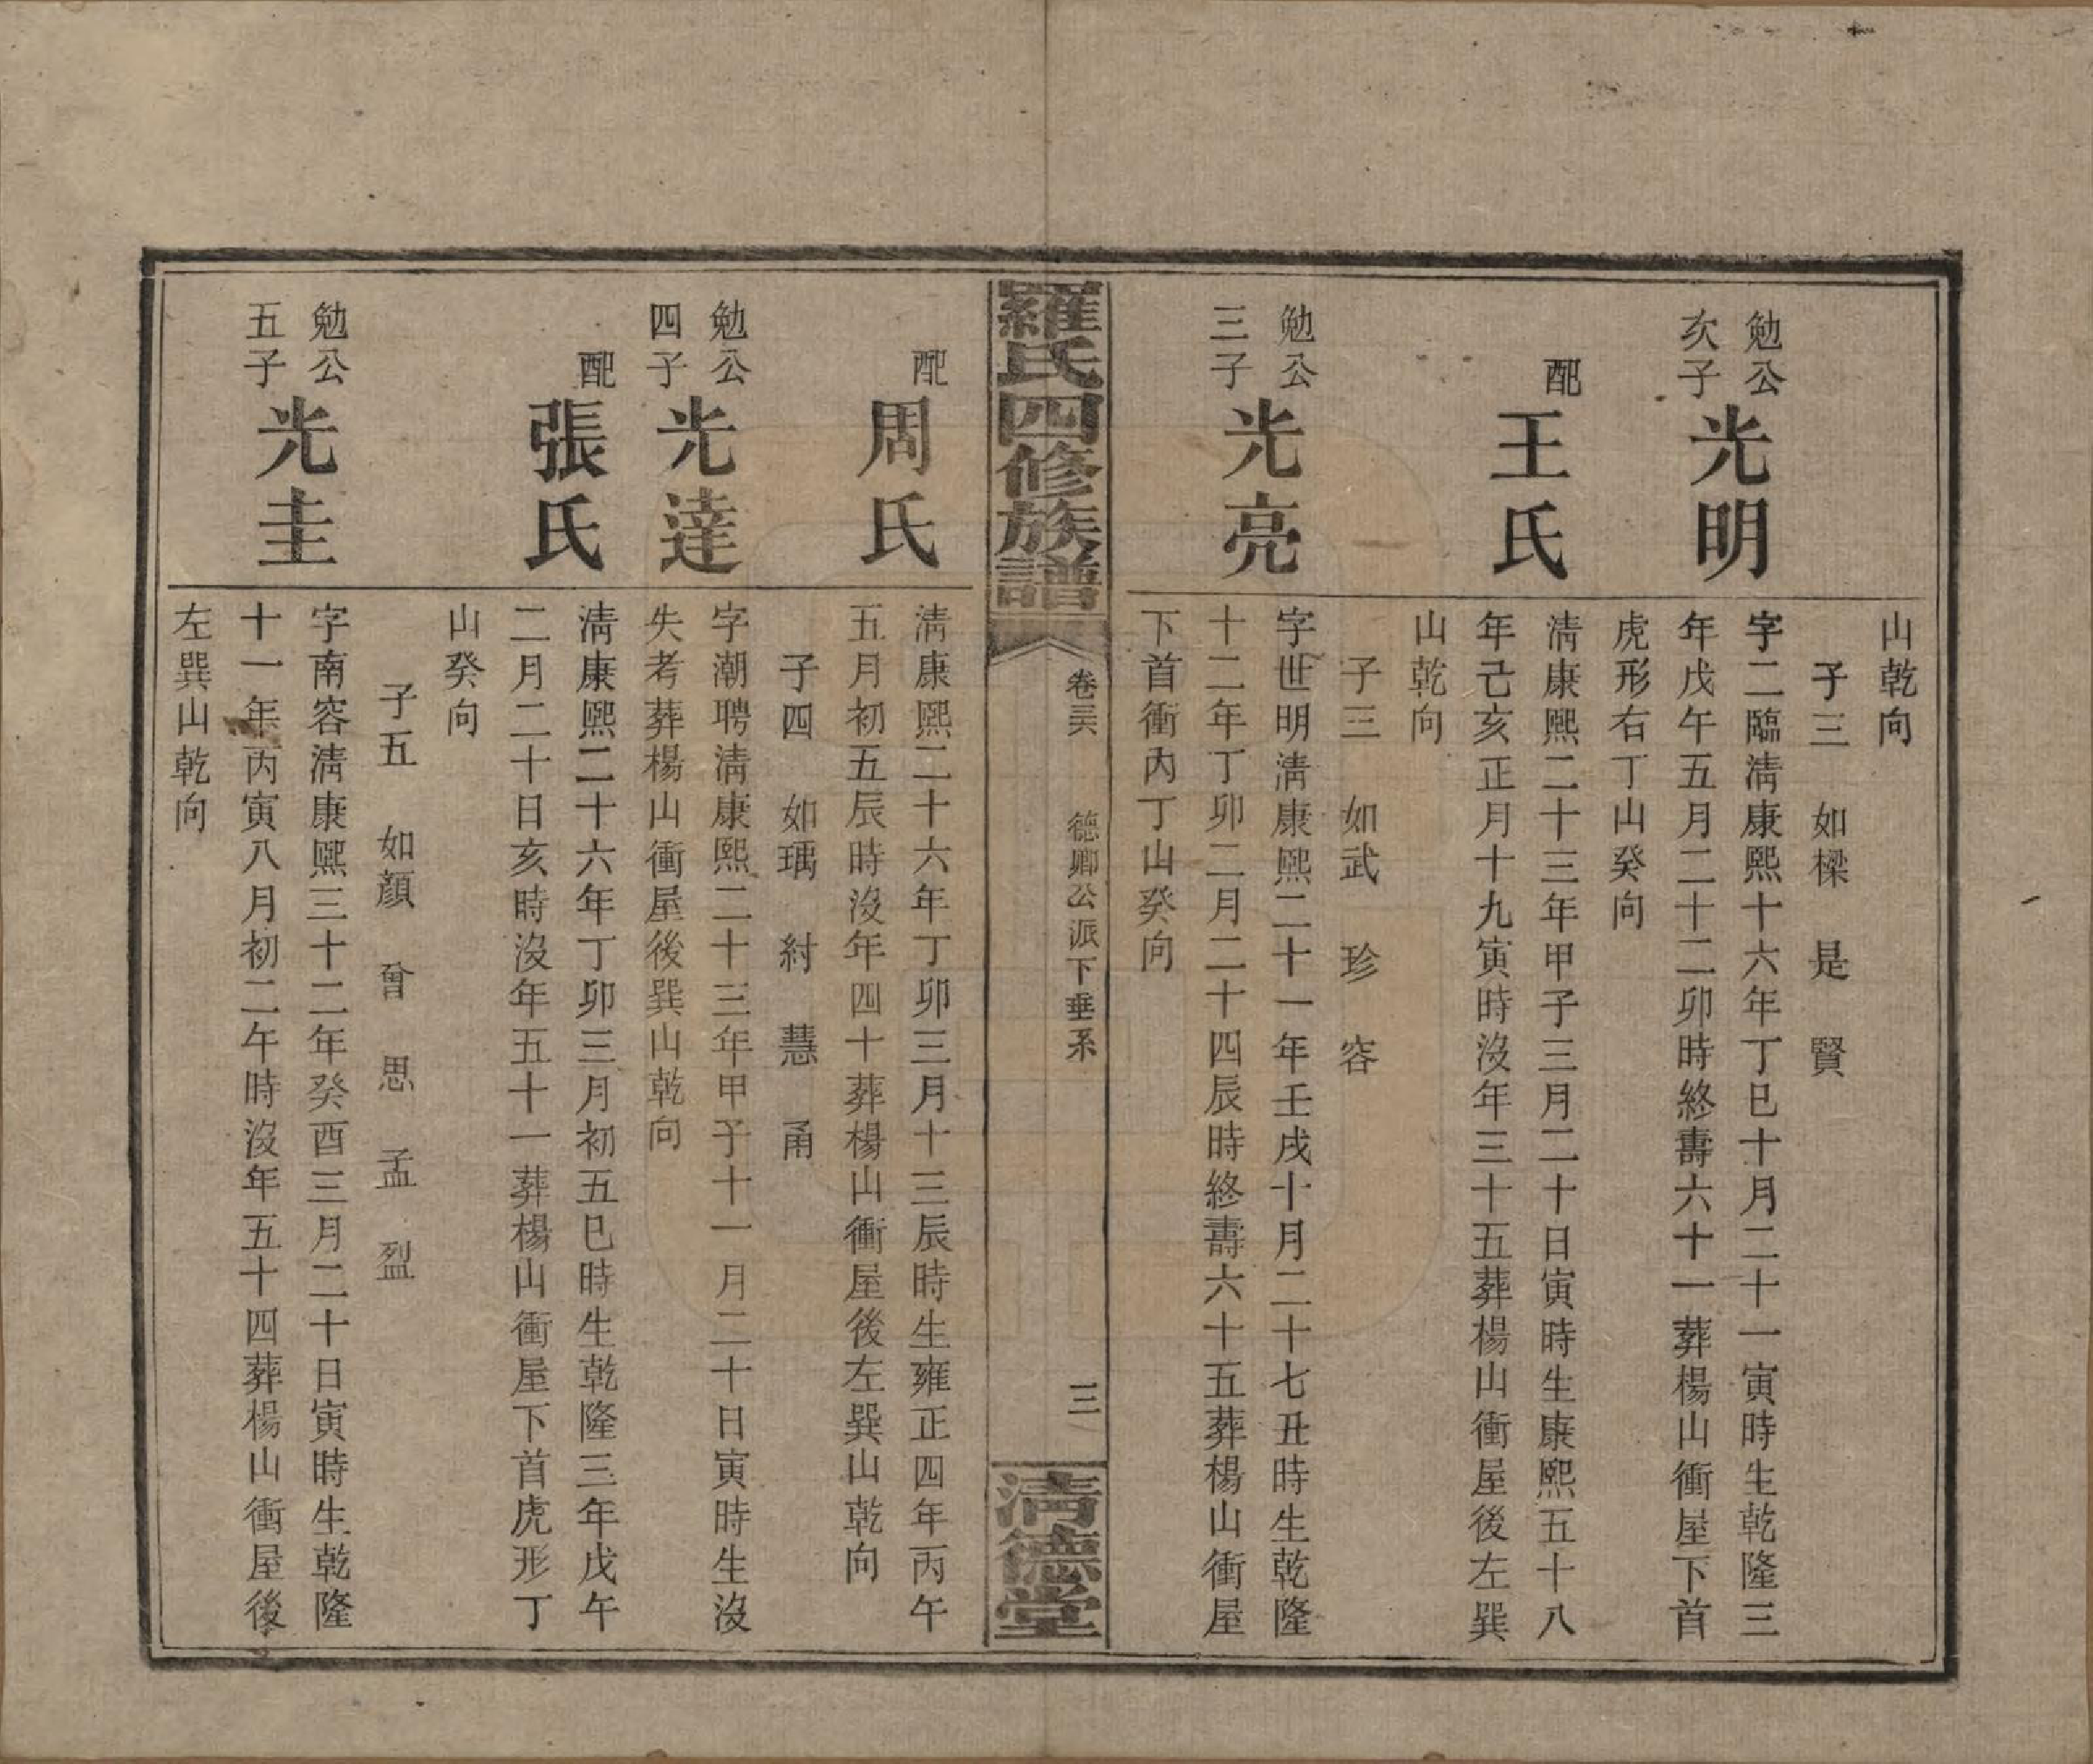 山乾向
子三　如樑　是　賢
勉公
次子
光明
字二臨淸康熙十六年丁巳十月二十一寅時生乾隆三
年戊午五月二十二卯時終壽六十一葬楊山衝屋下首
虎形右丁山癸向
配
王氏
淸康熙二十三年甲子三月二十日寅時生康熙五十八
年己亥正月十九寅時沒年三十五葬楊山衝屋後左巽
山乾向
子三　如武　珍　容
勉公
三子
光亮
字世明淸康熙二十一年壬戌十月二十七丑時生乾隆
十二年丁卯二月二十四辰時終壽六十五葬楊山衝屋
下首衝內丁山癸向
羅氏四修族譜
卷三六　德卿公派下垂系
三
淸德堂
配
周氏
淸康熙二十六年丁卯三月十三辰時生雍正四年丙午
五月初五辰時沒年四十葬楊山衝屋後左巽山乾向
子四　如瑀　紂　慧　甬
勉公
四子
光達
字潮聘淸康熙二十三年甲子十一月二十日寅時生沒
失考葬楊山衝屋後巽山乾向
配
張氏
淸康熙二十六年丁卯三月初五巳時生乾隆三年戊午
二月二十日亥時沒年五十一葬楊山衝屋下首虎形丁
山癸向
子五　如顏　曾　思　孟　烈
勉公
五子
光圭
字南容淸康熙三十二年癸酉三月二十日寅時生乾隆
十一年丙寅八月初二午時沒年五十四葬楊山衝屋後
左巽山乾向